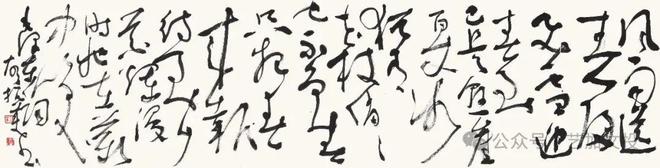 风雨送
春归
飞雪迎
春到
已是悬崖
百丈冰
犹有
花枝俏
俏
也不争春
只把春
来报
待到山
花烂漫
时她在丛
中笑
毛泽东词
公众号